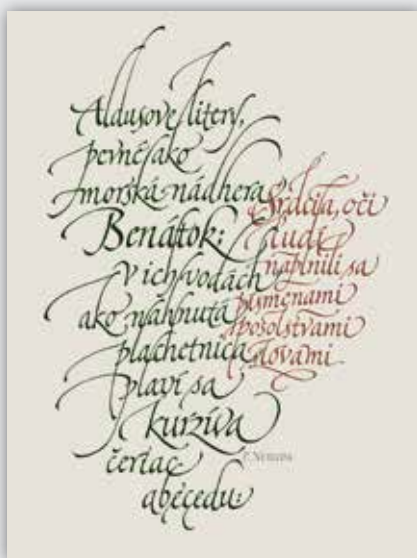 Aldusove litery,
pevné ako
morská nádhera
Benátok:
v ich vodách
ako nahnutá
plachetnica
plaví sa
kurzíva
čeriac
abecedu:
Srdcia, oči
ľudí
naplnili sa
písmenami
posolstvami
slovami
P. Neruda